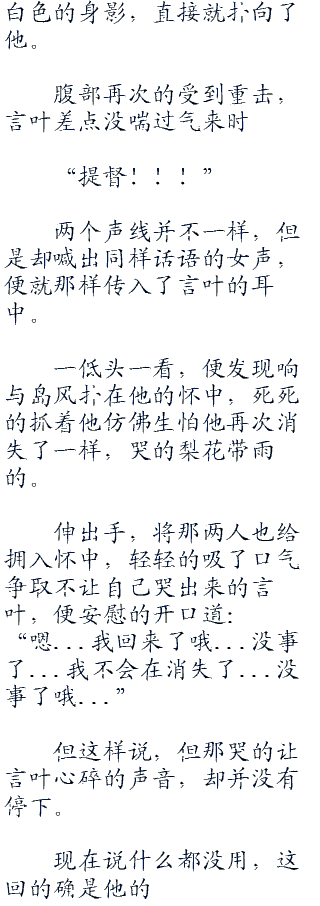 白色的身影，直接就扑向了
他。
腹部再次的受到重击，
言叶差点没喘过气来时
“提督！！！”
两个声线并不一样，但
是却喊出同样话语的女声，
便就那样传入了言叶的耳
中。
一低头一看，便发现响
与岛风扑在他的怀中，死死
的抓着他仿佛生怕他再次消
失了一样，哭的梨花带雨
的。
伸出手，将那两人也给
拥入怀中，轻轻的吸了口气
争取不让自己哭出来的言
叶，便安慰的开口道:
“嗯...我回来了哦...没事
了...我不会在消失了...没
事了哦...”
但这样说，但那哭的让
言叶心碎的声音，却并没有
停下。
现在说什么都没用，这
回的确是他的